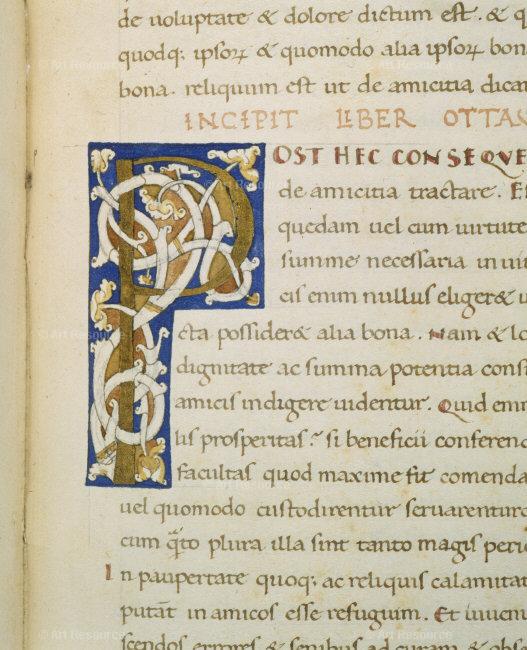 de uoluptate & dolore dictum est. & q
quodq; ipsoꝝ & quomodo alia ipsoꝝ bon
bona. reliquum est ut de amicitia dica
INCIPIT LIBER OTTAV
POST HEC CONSEQVE
de amicitia tractare. E
quedam uel cum uirtute
summe necessaria in ui
cis enim nullus eliger& u
cta possider& alia bona. Nam & lo
dignitate ac summa potentia cons
amicis indigere uidentur. Quid enim
lis prosperitas si beneficii conferend
facultas quod maxime fit comenda
uel quomodo custodirentur seruarentur
cum q̃to plura illa sint tanto magis peri
In paupertate quoq; ac reliquis calamitat
putãt in amicos esse refugium. Et iuuen
scendos errores & senibus ad curam & obs
© Art Resource